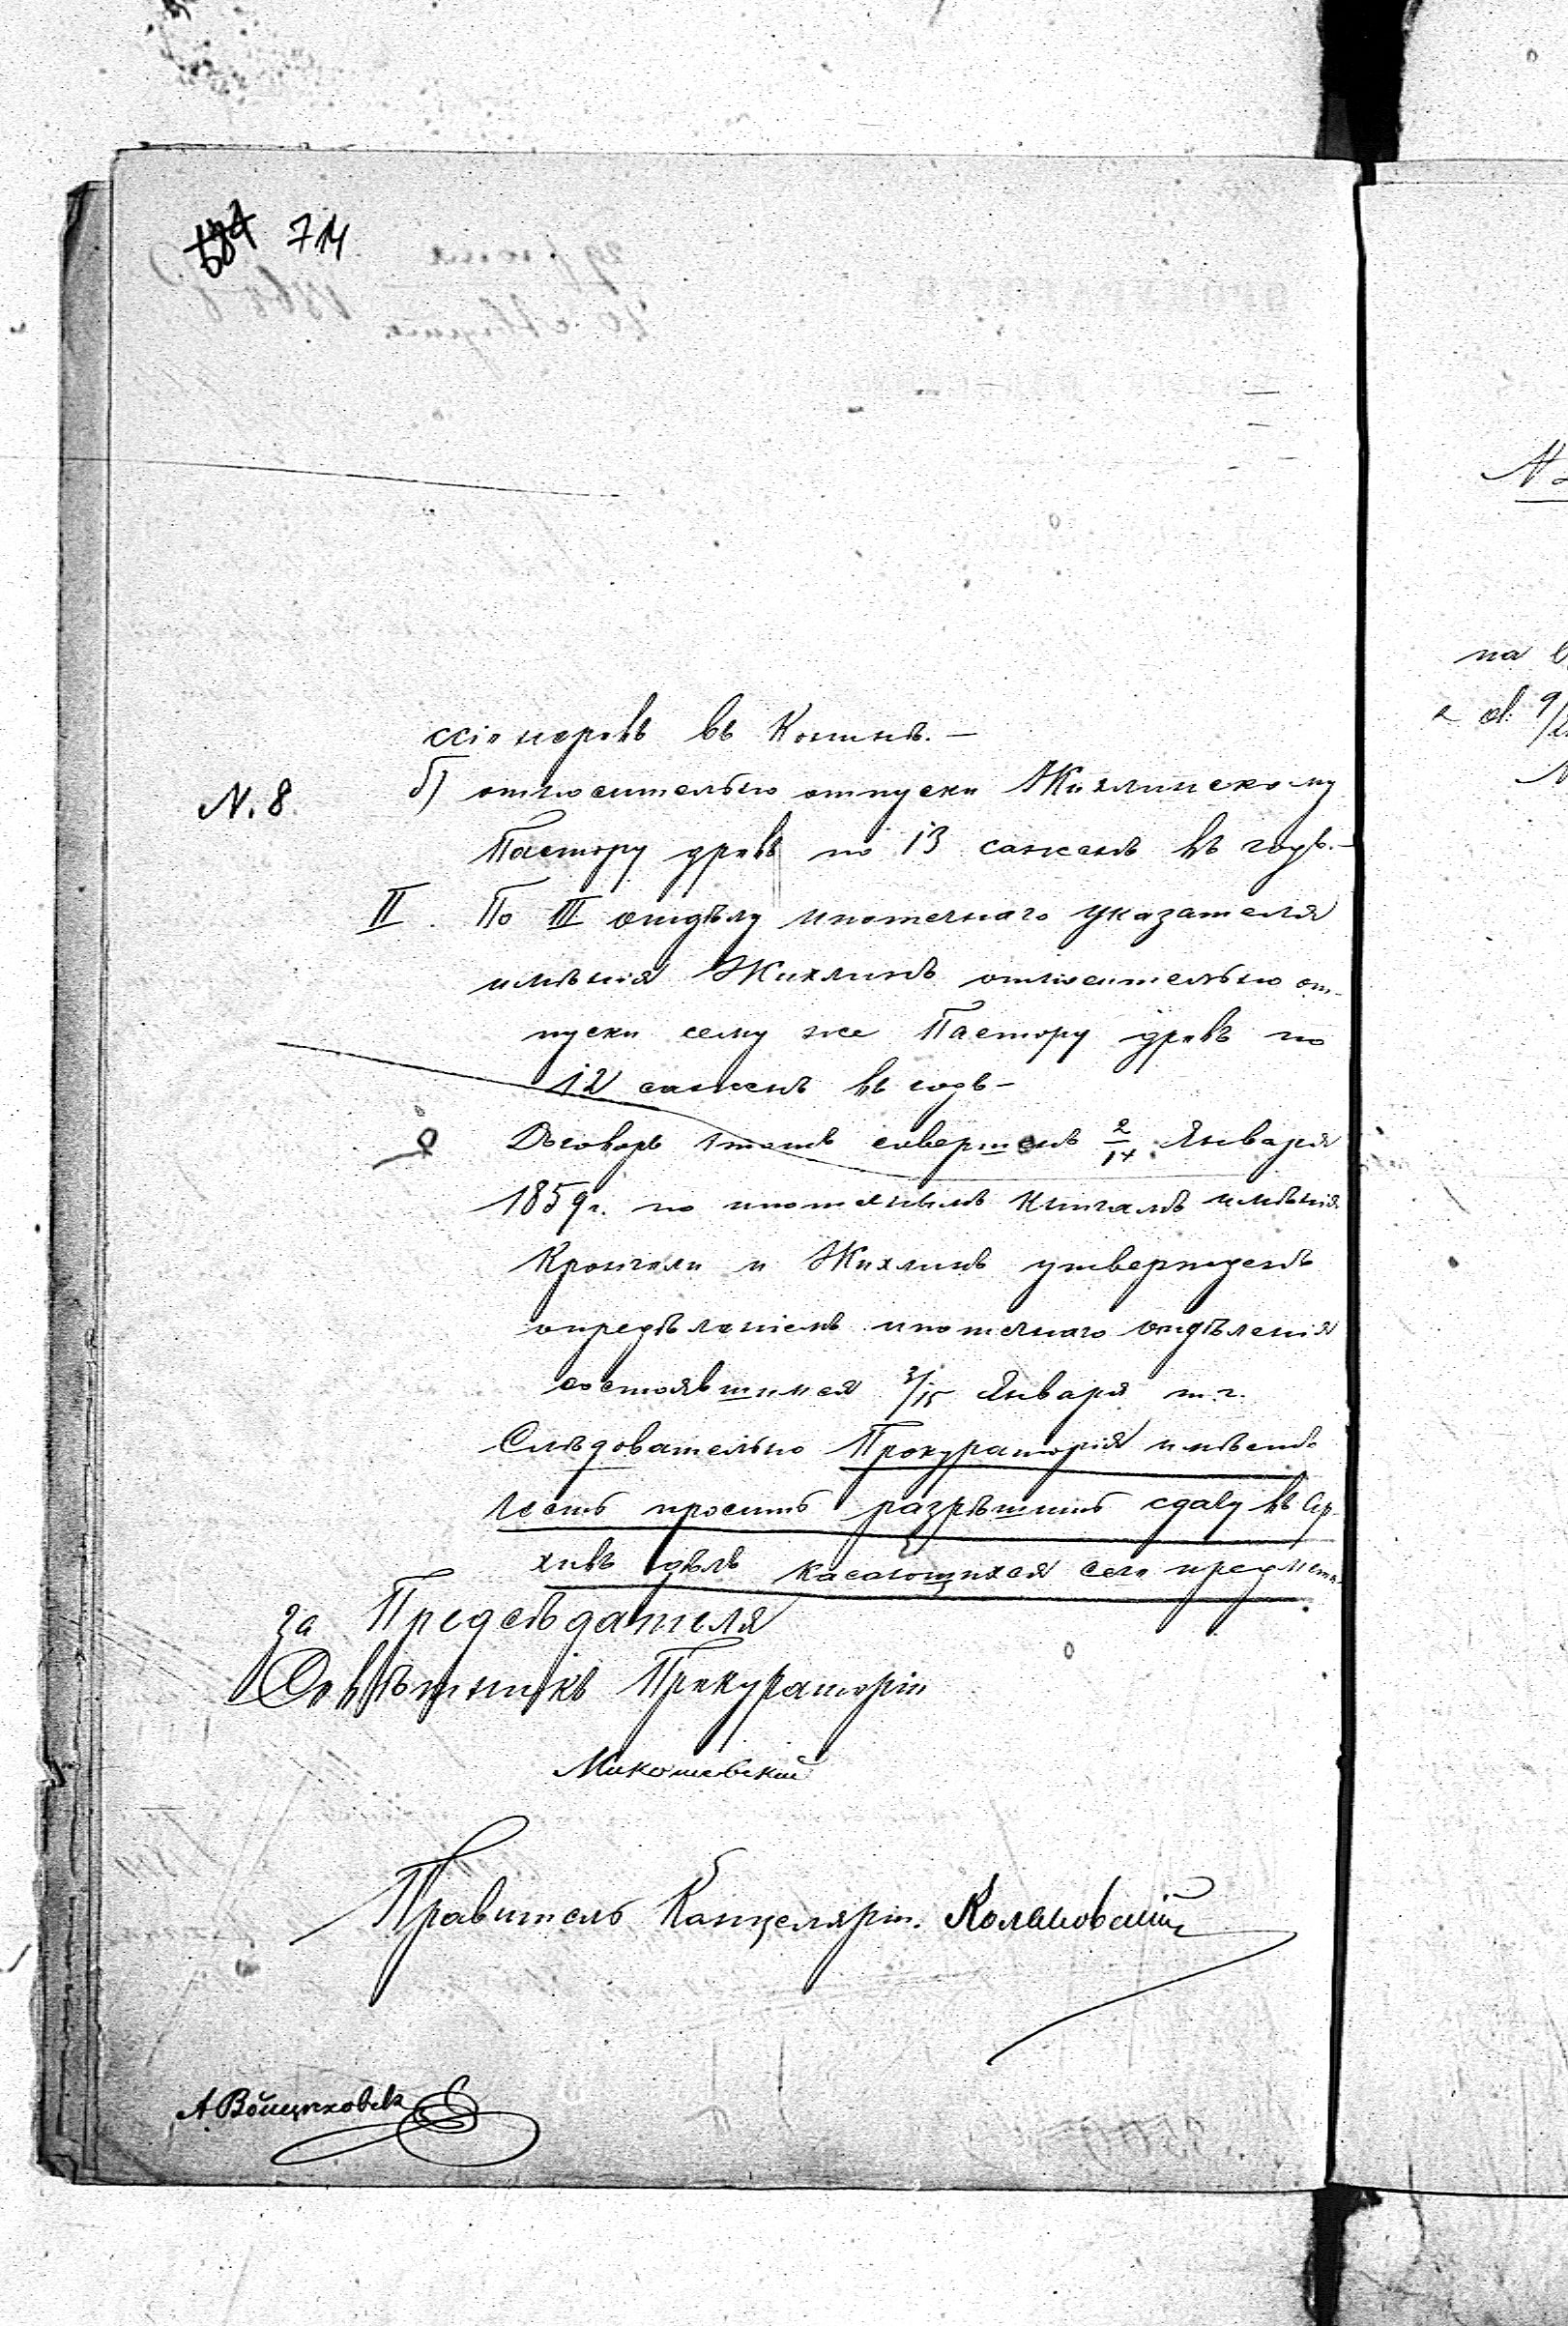 714
ссіонеровъ въ Кошнѣ. —
N. 8. б) относительно отпуска Жихлинскому
Пастору дровъ по 13 сажень въ годъ. —
II. По III отдѣлу ипотечнаго указателя
имѣнія Жихлинъ относительно от-
пуска сему же Пастору дровъ по
12 сажень въ годъ —
Договоръ этотъ совершенъ 2/14 Января
1859 г. по ипотечнымъ книгамъ имѣнія
и Жихлинъ утвержденъ
опредѣленіемъ ипотечнаго отдѣленія
состоявшимся 3/15 Января т. г.
Слѣдовательно Прокураторія имѣетъ
честь просить разрѣшить сдачу въ Ар-
хивъ дѣлъ касающихся сего предмета.
За Предсѣдателя
Совѣтникъ Прокураторіи
Правитель Канцеляріи.
N
на